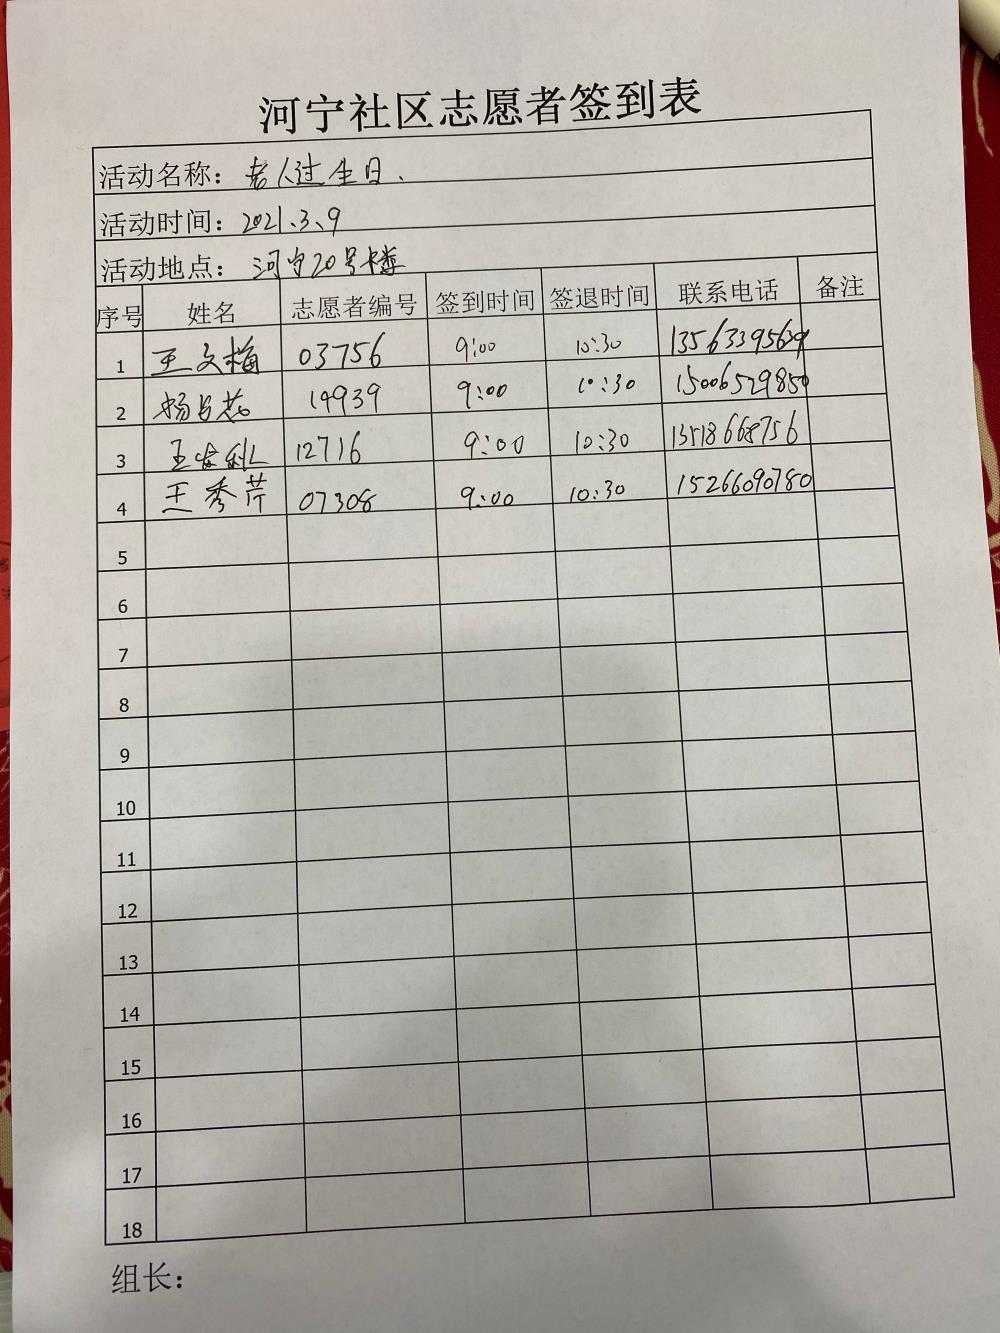 河宁社区志愿者签到表
活动名称：老人过生日.
活动时间：2021.3.9
活动地点：河宁20号楼
序号 姓名 志愿者编号 签到时间 签退时间 联系电话 备注
1 王文梅 03756 9:00 10:30 13563395639
2 杨 14939 9:00 10:30 15006529850
3 王 12716 9:00 10:30 13518668756
4 王秀芹 07308 9:00 10:30 15266090780
5
6
7
8
9
10
11
12
13
14
15
16
17
18
组长：